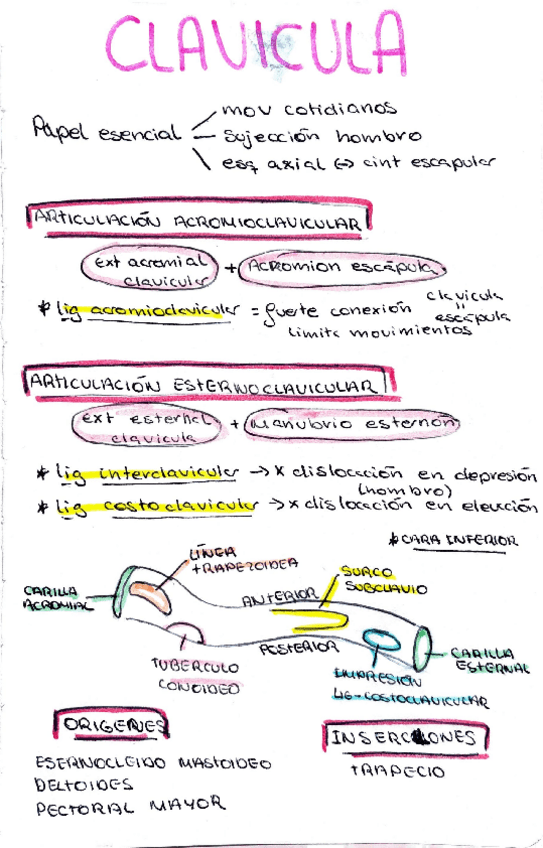 CLAVICULA
Papel esencial
mov cotidianos
sujección hombro
esq axial ↔ cint escapular
ARTICULACIÓN ACROMIOCLAVICULAR
ext acromial clavicular + Acromion escápula
* lig acromioclavicular = fuerte conexión clavicula
"
escápula
limita movimientos
ARTICULACIÓN ESTERNOCLAVICULAR
ext esternal clavicula + Manubrio esternón
* lig interclavicular → x dislocación en depresión
(hombro)
* lig costoclavicular → x dislocación en elevación
* CARA INFERIOR
LÍNEA
TRAPEZOIDEA
SURCO
SUBCLAVIO
CARILLA
ACROMIAL
ANTERIOR
POSTERIOR
TUBERCULO
CONOIDEO
CARILLA
ESTERNAL
IMPRESIÓN
LIG-COSTOCLAVICULAR
ORIGENES
ESERNOCLEIDO MASTOIDEO
DELTOIDES
PECTORAL MAYOR
INSERCIONES
TRAPECIO